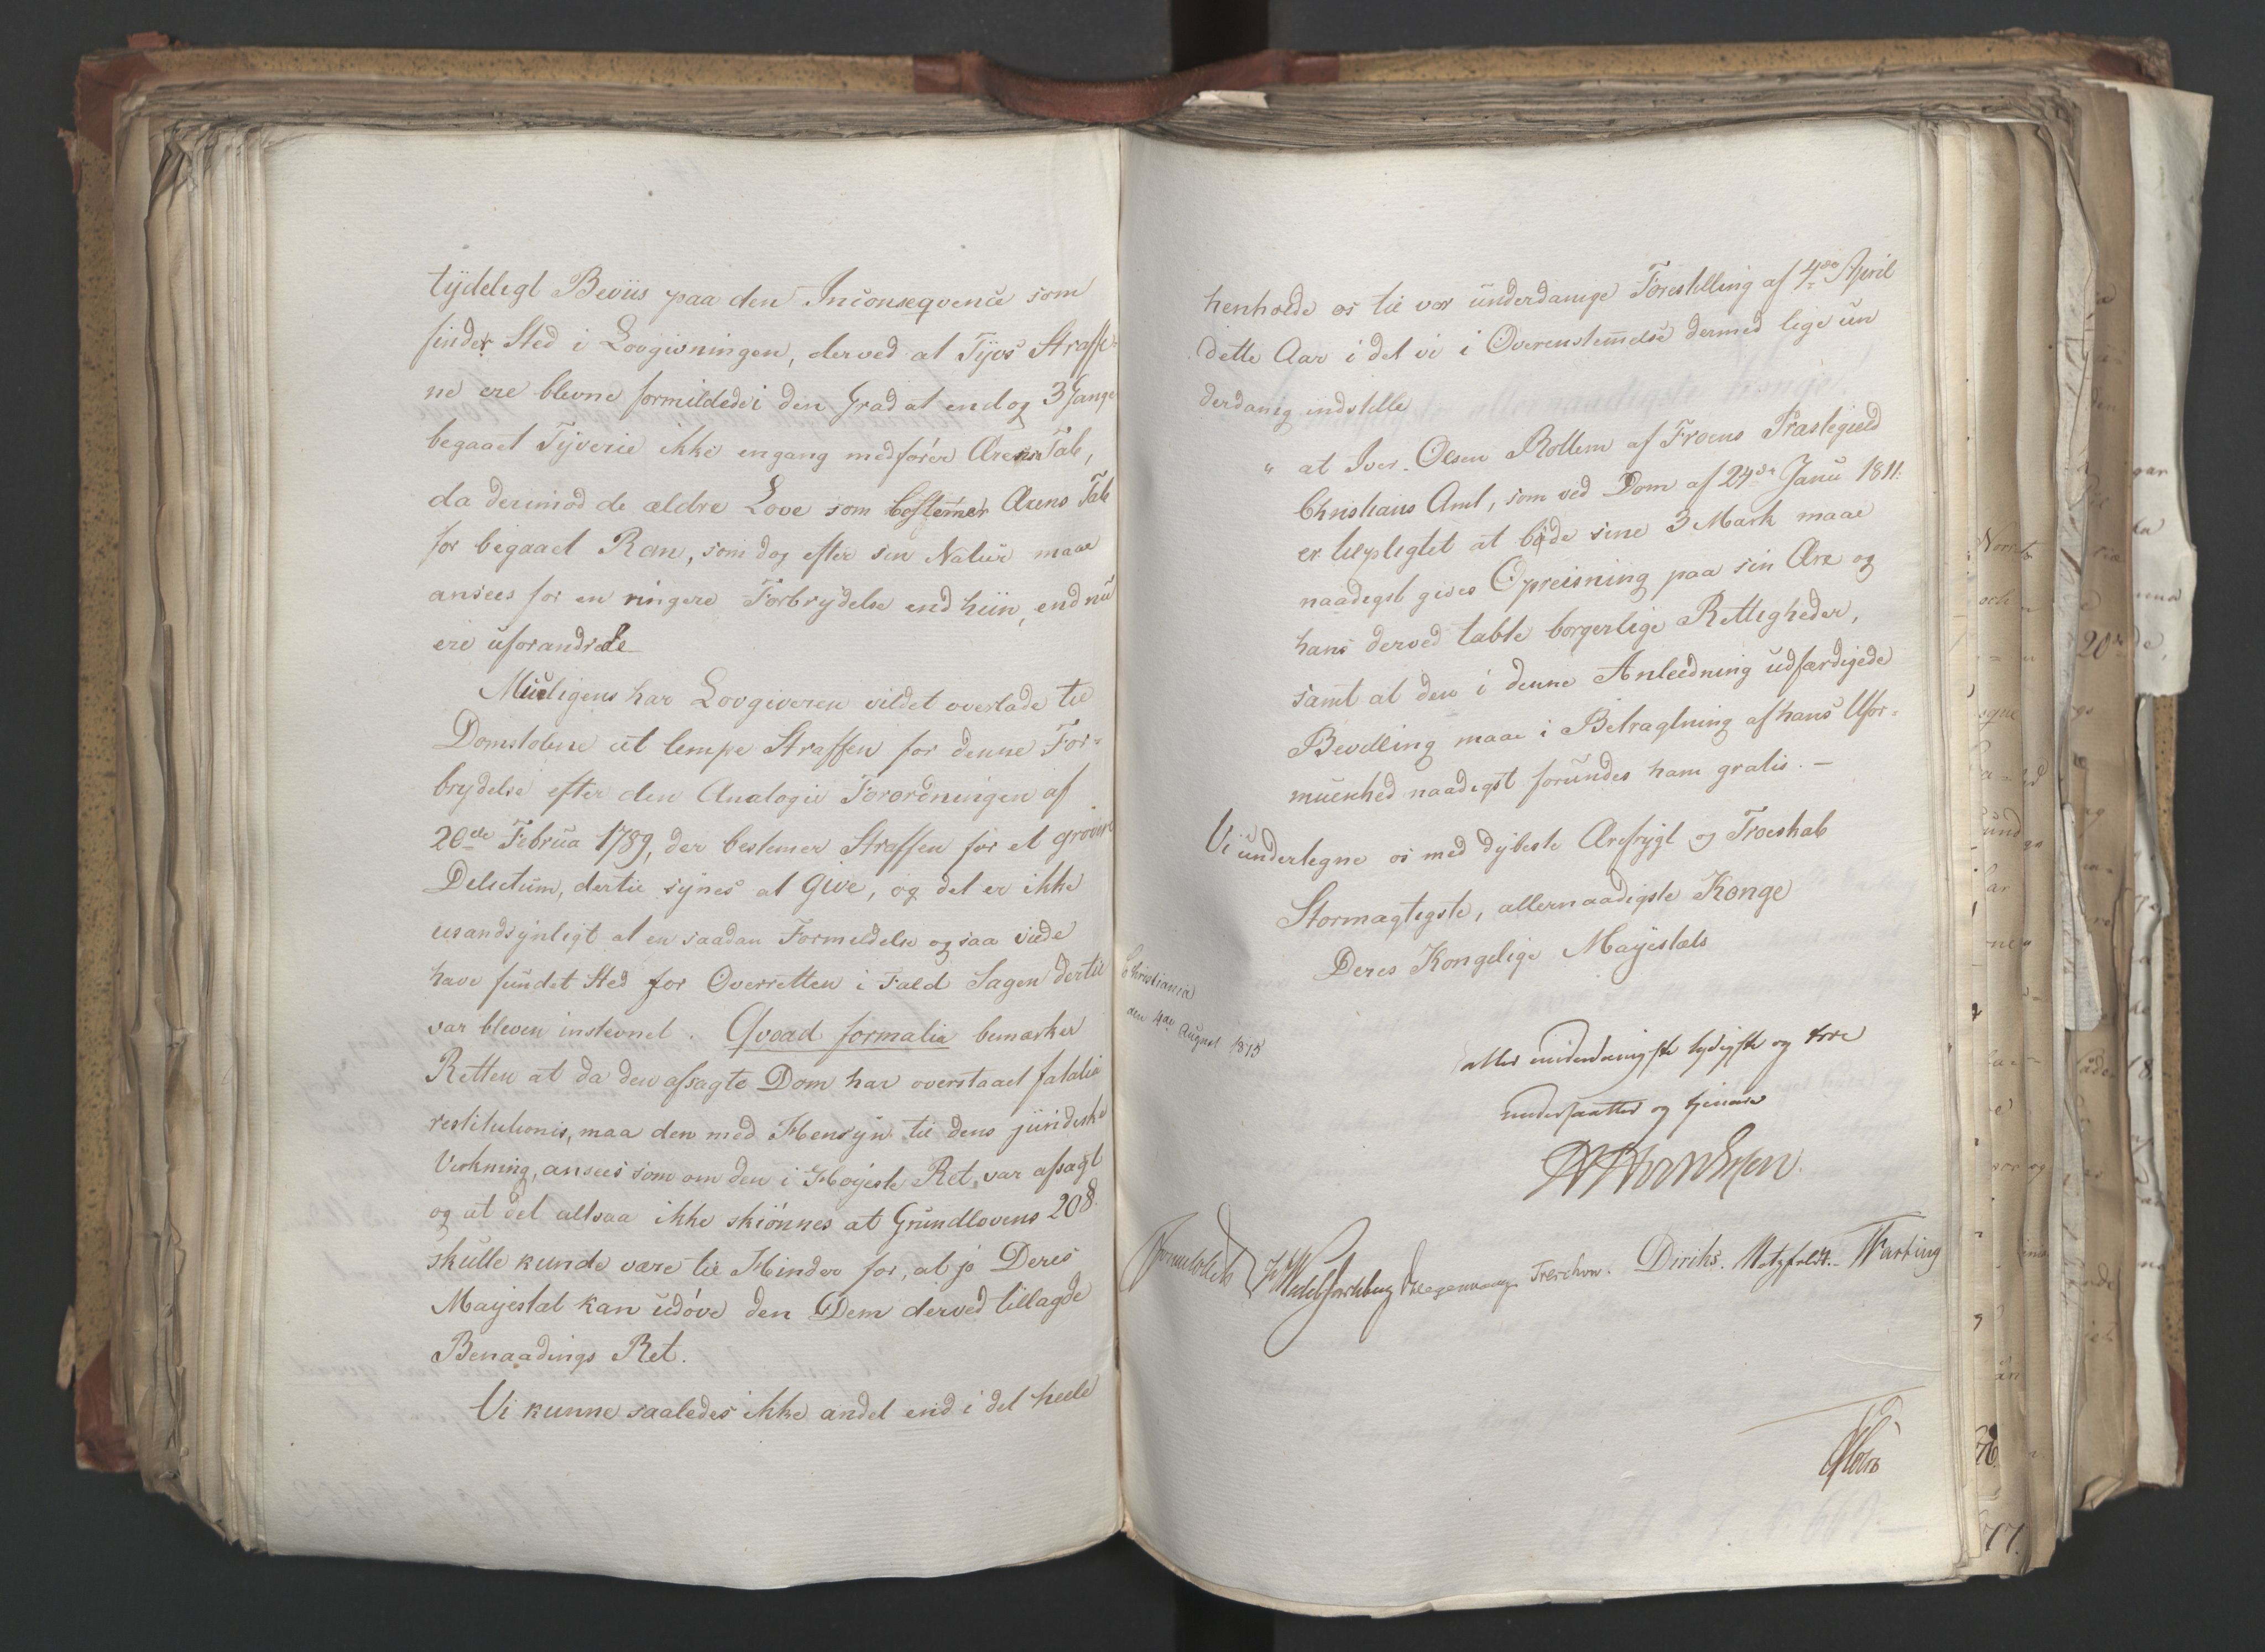 tydeligt Beviis paa den Inconseqvence som
finder Sted i Lovgivningen, derved at Tyvs Straffe-
ne ere blevne formildede i den Grad at endog 3 Gange
begaaet Tyverie ikke engang medfører Ærens Tab,
da derimod de ældre Love som bestemer Ærens Tab
for begaaet Ran, som dog efter sin Natur maae
ansees for en ringere Forbrydelse end hiin, end nu
ere uforandrede
Mueligens har Lovgiveren vildet overlade til
Domstolene at lempe Straffen for denne For-
brydelse efter den Analogie Forordningen af
20de Februa 1789, der bestemer Straffen for et grovere
Delictum, dertil synes at give, og det er ikke
usandsynligt at en saadan Formildelse ogsaa vilde
have fundet Sted for Overretten i Fald Sagen dertil
var bleven instevnet. Qvoad formalia bemærker
Retten at da den afsagte Dom har overstaaet fatalia
restitutionis, maa den med Hensyn til dens juridiske
Virkning, ansees som om den i Høyeste Ret var afsagt
og at det altsaa ikke skiønnes at Grundlovens 20 §.
skulle kunde være til Hinder for, at jo Deres
Mayestæt kan udøve den Dem derved tillagde
Benaadings Ret.
Vi kunne saaledes ikke andet end i det heele
henholde os til vor underdanige Forestilling af 4de April
dette Aar i det vi i Overenstemelse dermed lige un
derdanig indstille
" at Iver Olsen Rollem af Froens Præstegield
Christians Amt, som ved Dom af 24de Janu 1811.
er tilpligtet at bøde sine 3 Mark maae
naadigst gives Opreisning paa sin Ære og
hans derved tabte borgerlige Rettigheder,
samt at den i denne Anleedning udfærdigede
Bevilling maae i Betragtning af hans Ufor-
muenhed naadigst forundes ham gratis. —
Vi undertegne os med dybeste Ærefrygt og Troeskab
Stormægtigste, allernaadigste Konge
Deres Kongelige Mayestæts
Christiania
den 4de August 1815
aller underdanigste lydigste og troe
undersaatter og tjenere
Sommerhielm HWedelJarlsberg Hegermann Treschow. Diriks. Motzfeldt. Fasting